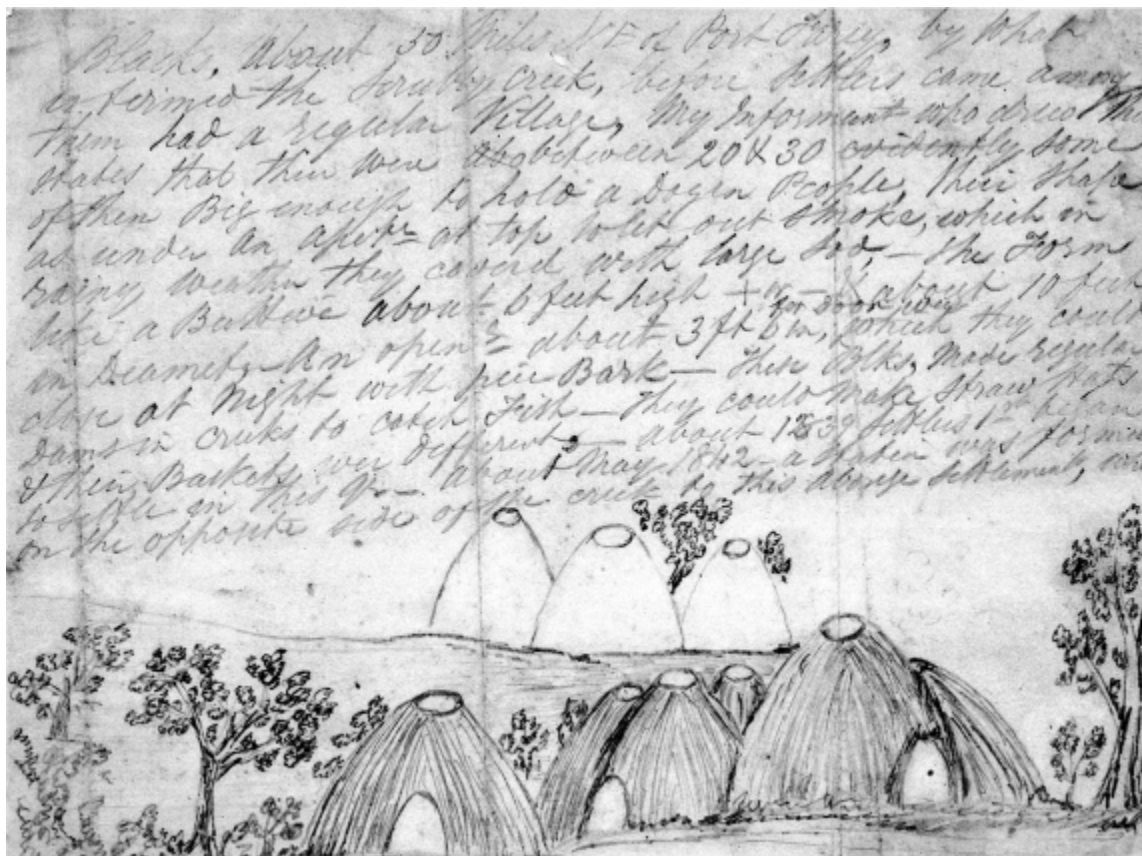 Blacks, about 50 Miles NE of Port Fairy, by What
is termed the Scrubby Creek, before Settlers came among
them had a regular Village, My Informant who drew this
states that there were between 20 & 30 evidently some
of them Big enough to hold a Dozen People, their shape
as under an at top to let out smoke, which in
rainy weather they coverd with large Sod, — the Form
like a BeeHive about 6 feet high + or — about 10 feet
in Deamet, An open.g for door way
about 3 ft 6 in, which they could
close at Night with Bark — These Blks, Made regular
Dams in creeks to catch Fish — They could make Straw Hats
& their Baskets wer different, — about 1839 Settlers 1st began
to settle in this — about May 1842 a Station was formed
on the opposite side of the creek to this settlement,